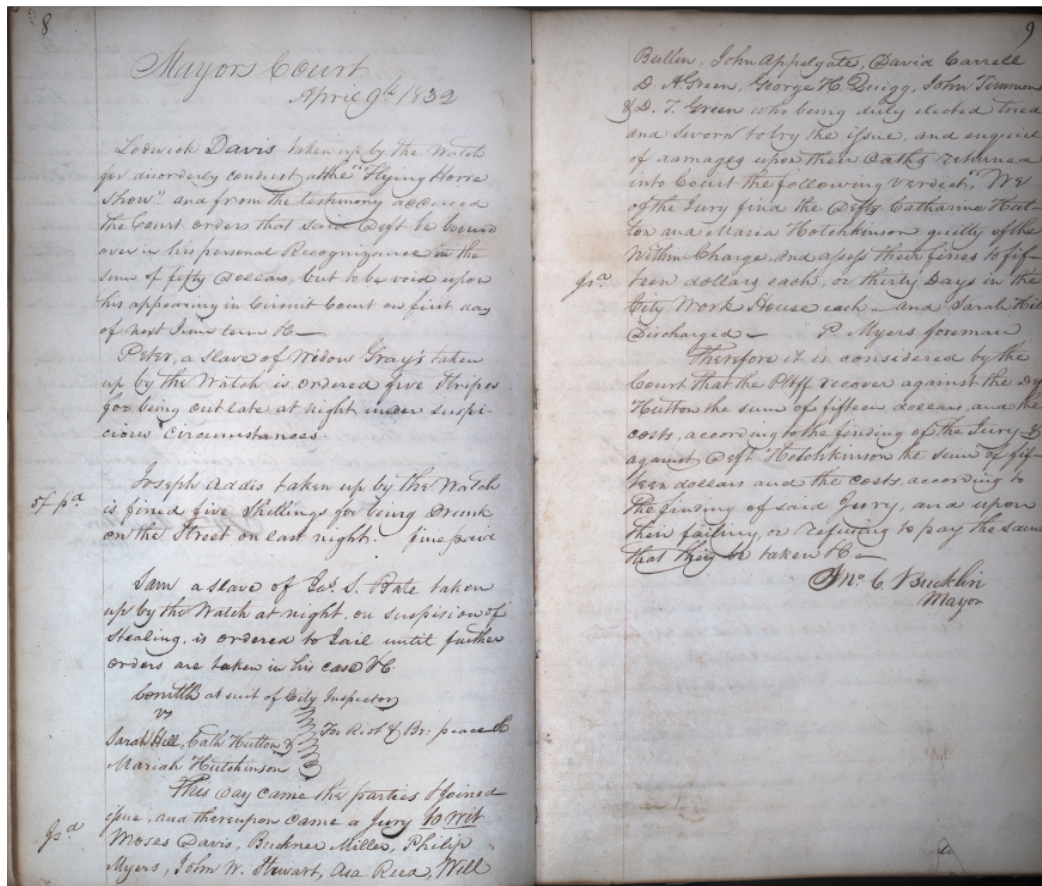 8
Mayors Court
April 9th 1832
Lodwick Davis taken up by the Watch
for disorderly conduct at the "Flying Horse
Show" and from the testimony adduced
the Court orders that said Deft be bound
over in his personal Recognizance in the
sum of fifty Dollars, but to be void upon
his appearing in Circuit Court on first day
of next June term &c
Peter, a slave of Widow Gray's taken
up by the Watch is ordered five Stripes
for being out late at night under suspi-
cious circumstances.
Joseph Addis taken up by the Watch
5/ pd is fined five Shillings for being Drunk
on the Street on last night. fine paid
Sam a slave of Jas. S. Bate taken
up by the Watch at night, on suspision of
Stealing, is ordered to Jail until further
orders are taken in his case &c
Comlth at suit of City Inspector
vs
Sarah Hill, Cath Hutton & For Riot & Br: peace &c
Mariah Hutchinson
This day came the parties & joined
issue, and thereupon came a Jury to wit
Moses Davis, Buckner Miller, Philip
Myers, John W. Stewart, Asa Reed, Will
9
Bullen, John Appelgate, David Carrell
D. A Green, George H. Quigg, John Timmon
& D. T. Green who being duly elected tried
and sworn to try the issue, and enquire
of damages upon their Oaths returned
into Court the following verdect, "We
of the Jury find the Defts Catharine Hut-
ton and Maria Hotchkinson guilty of the
within Charge, and assess their fines to fif-
teen dollars each, or thirty Days in the
City Work House each - and Sarah Hill
Discharged - P. Myers foreman
Therefore it is considered by the
Court that the Pltff recover against the Dft
Hutton the sum of fifteen dollars, and the
costs, according to the finding of the Jury &
against Deft Hotchkinson the sum of fif-
teen dollars and the costs, according to
the finding of said Jury, and upon
their failing, or refusing to pay the same
that they be taken &c
Jno. C. Bucklin
Mayor